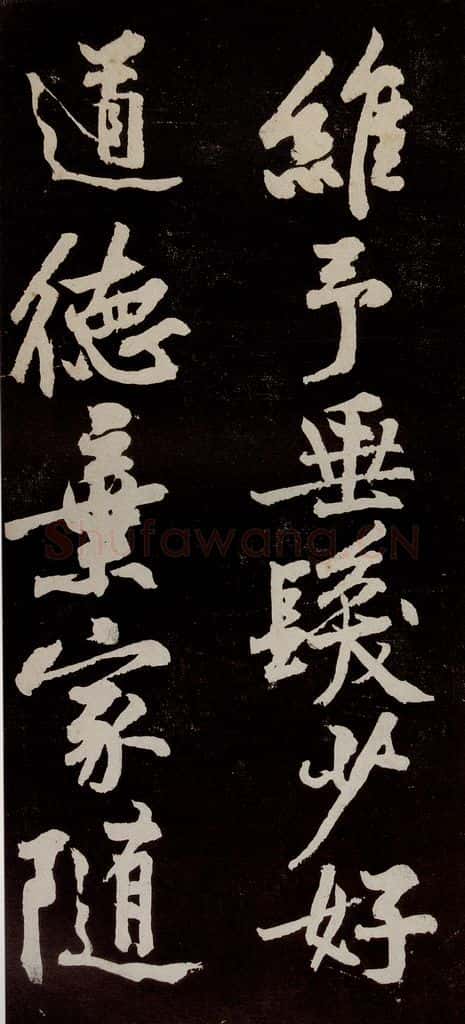 維予垂髮少好
道德棄家隨
Shufawang.CN